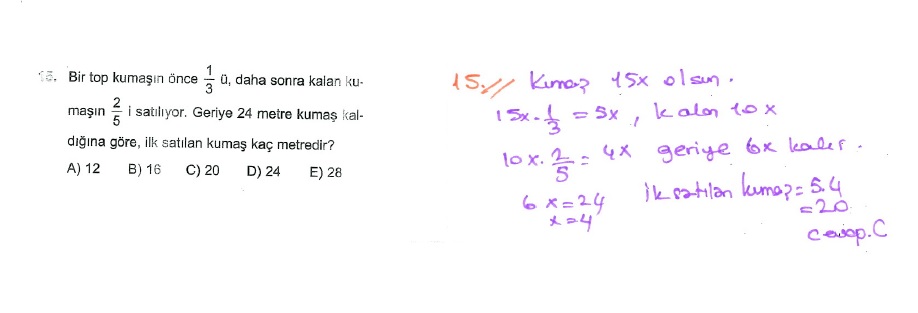 15. Bir top kumaşın önce 1/3 ü, daha sonra kalan ku-
maşın 2/5 i satılıyor. Geriye 24 metre kumaş kal-
dığına göre, ilk satılan kumaş kaç metredir?
A) 12 B) 16 C) 20 D) 24 E) 28
15.// Kumaş 15x olsun.
15x.1/3 = 5x, kalan 10x
10x.2/5 = 4x geriye 6x kalır.
6x=24
x=4
ilk satılan kumaş = 5.4
=20
Cevap.C